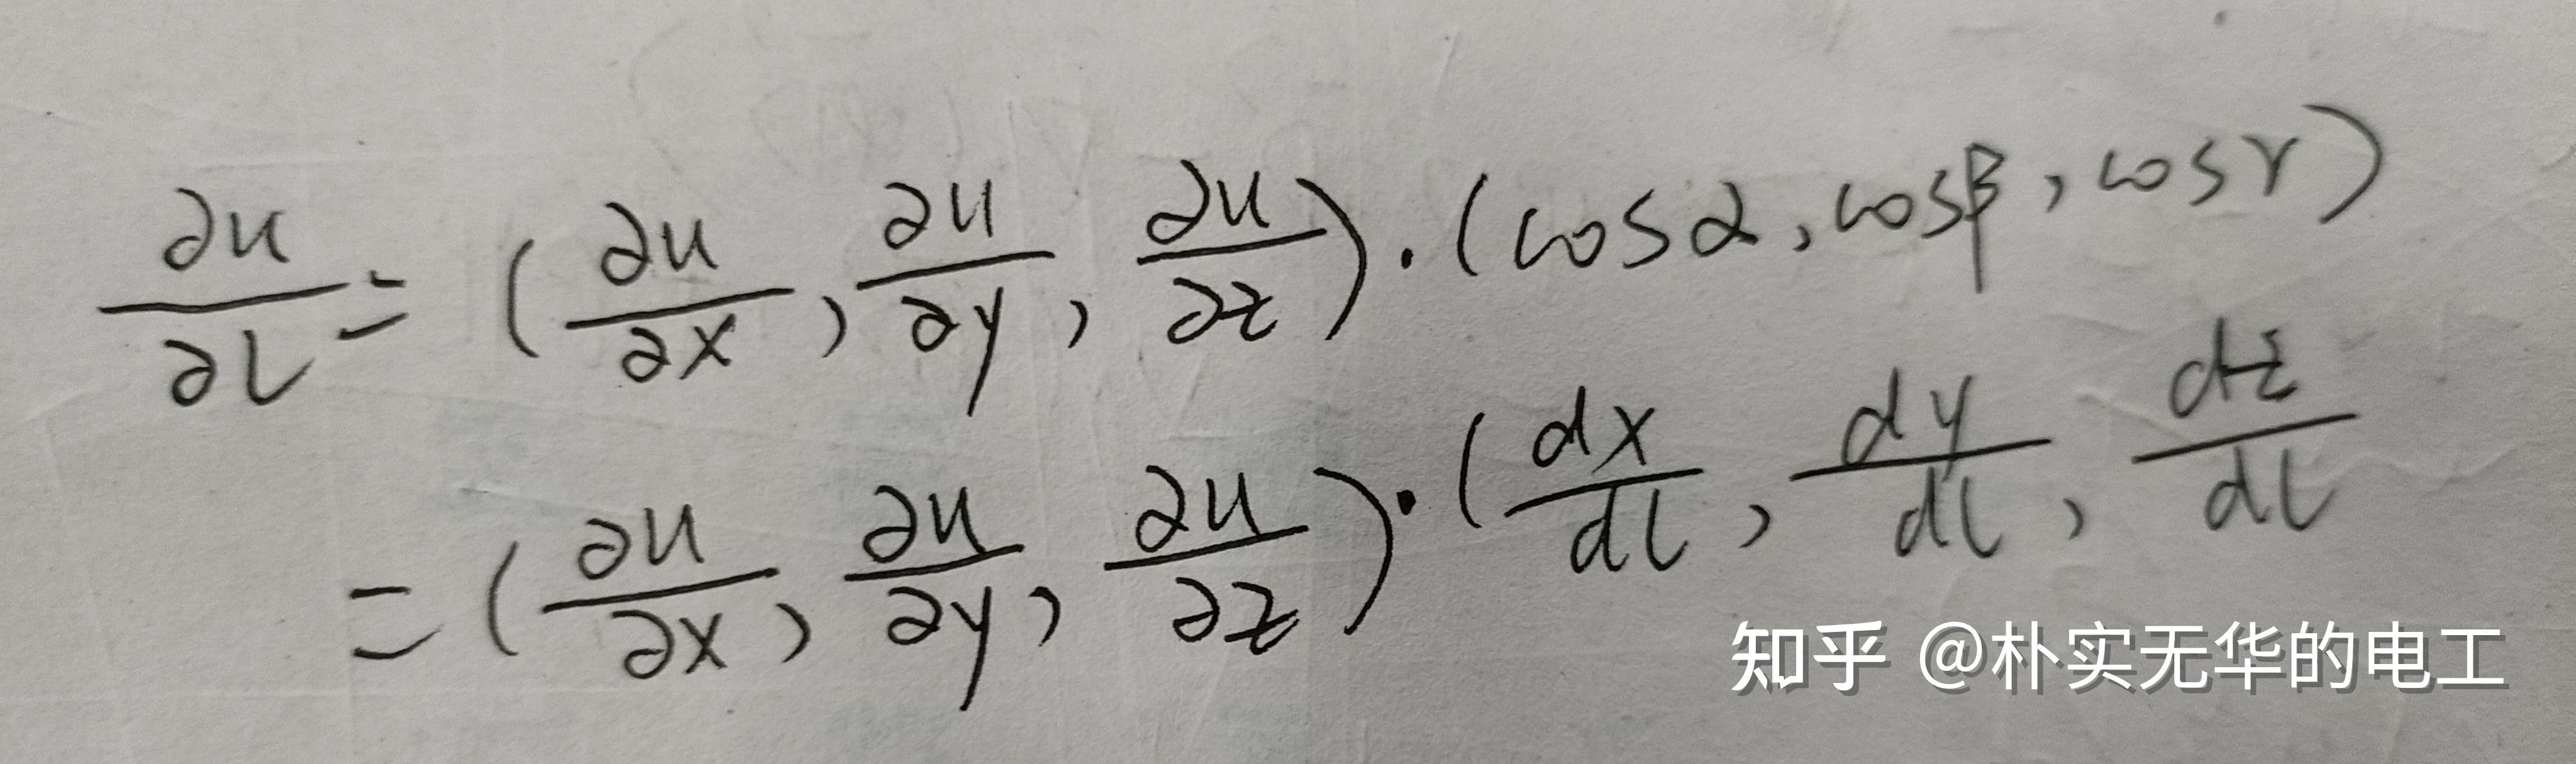 ∂u/∂l = (∂u/∂x, ∂u/∂y, ∂u/∂z)·(cosα, cosβ, cosγ)
= (∂u/∂x, ∂u/∂y, ∂u/∂z)·(dx/dl, dy/dl, dz/dl)
知乎 @朴实无华的电工